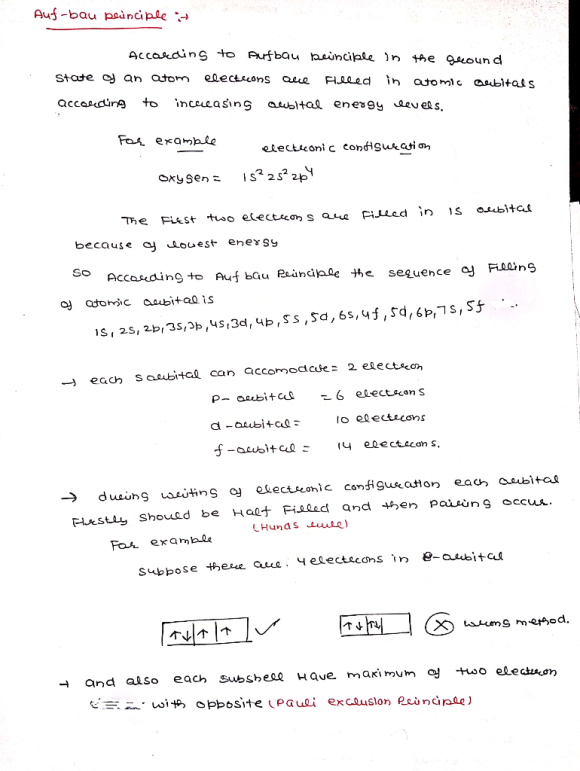 Auf-bau principle :→
According to Aufbau principle in the ground
state of an atom electrons are filled in atomic orbitals
according to increasing orbital energy levels.
For example electronic configuration
oxygen = 1s² 2s² 2p⁴
The first two electrons are filled in 1s orbital
because of lowest energy
so According to Aufbau Principle the sequence of filling
of atomic orbital is
1s, 2s, 2p, 3s, 3p, 4s, 3d, 4p, 5s, 5d, 6s, 4f, 5d, 6p, 7s, 5f ...
→ each s orbital can accomodate = 2 electron
p- orbital = 6 electrons
d - orbital = 10 electrons
f - orbital = 14 electrons.
→ during writing of electronic configuration each orbital
Firstly should be Half filled and then pairing occur.
(Hunds rule)
For example
suppose there are. 4 electrons in -orbital
↑↓ ↑ ↑ ✓ ↑↓ ↑↓ ⊗ wrong method.
→ and also each subshell Have maximum of two electron
with opposite (Pauli exclusion Principle)